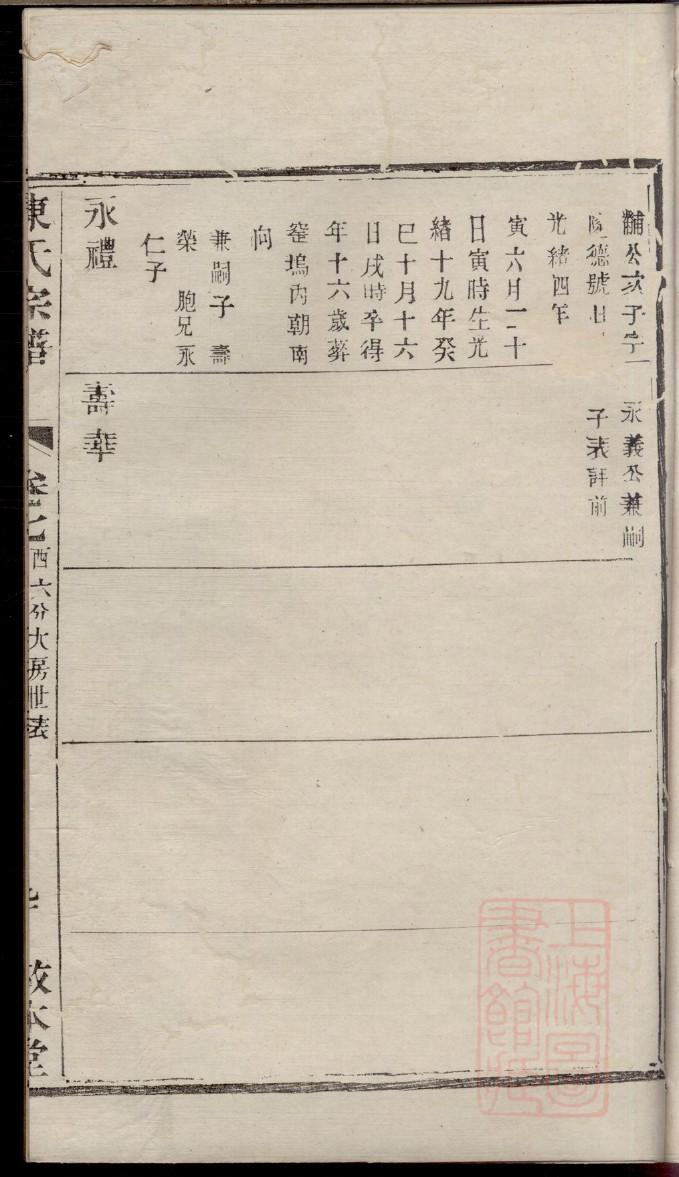 黼公次子字
德號
光緒四年
寅六月二十
日寅時生光
緒十九年癸
巳十月十六
日戌時卒得
年十六歲葬
窰塢內朝南
向
兼嗣子 壽
榮 胞兄永
仁子
永禮
永義公兼嗣
子表詳前
壽華
氏宗譜
卷七
西六分大房世表
敦本堂
上海圖書館藏